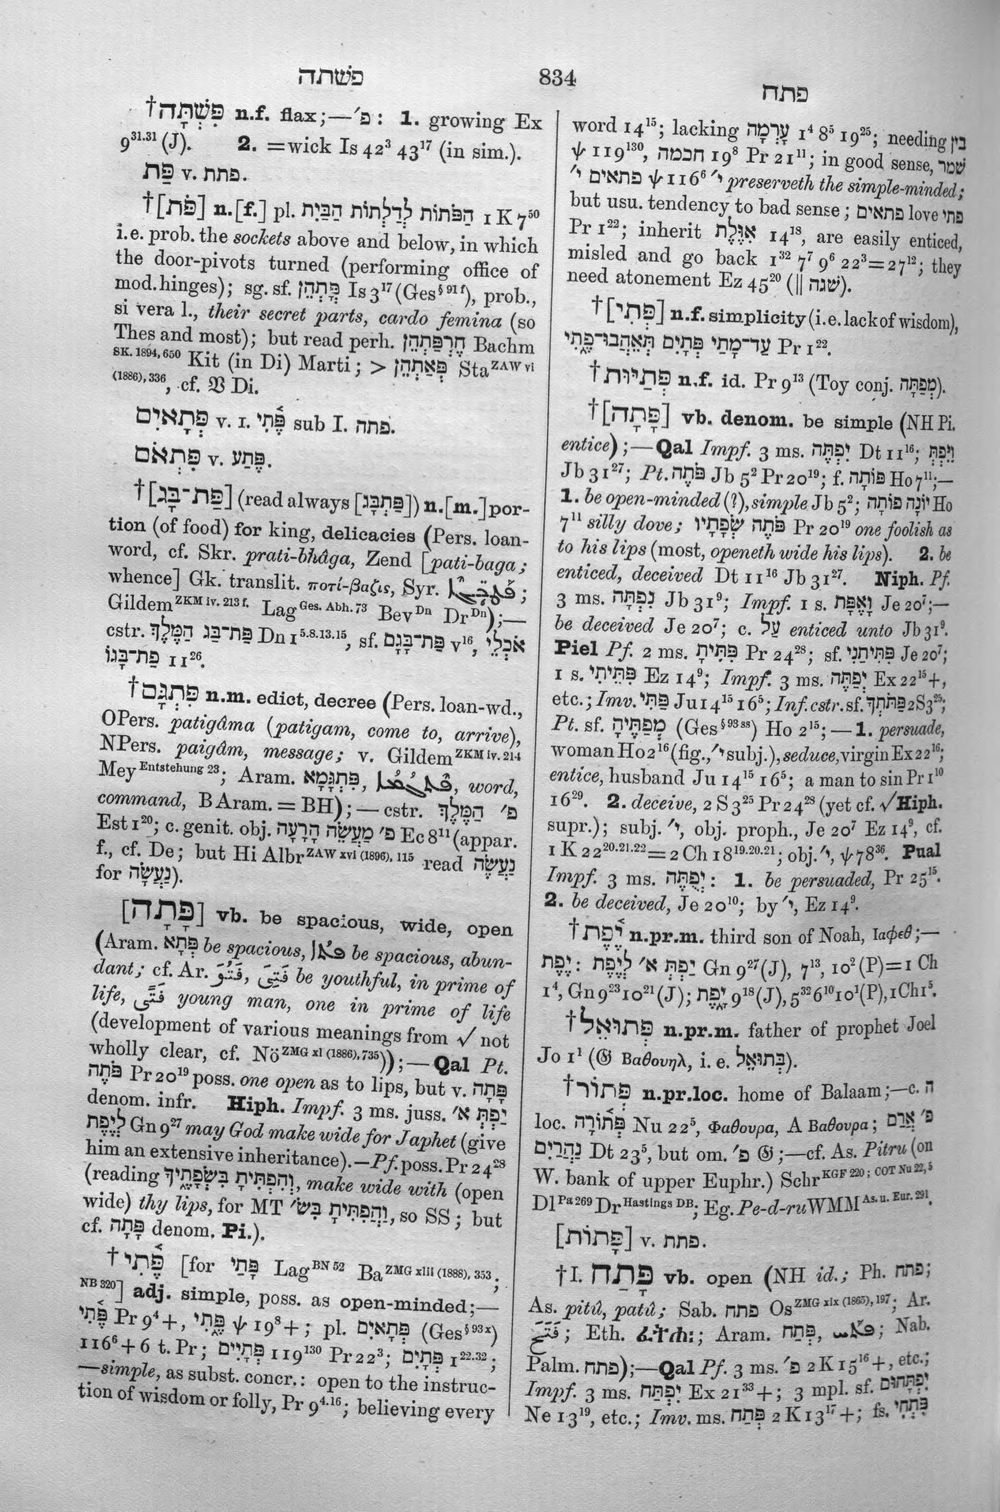 פשתה
834
פתח
†פִּשְׁתָּה n.f. flax;—פ׳: 1. growing Ex
9³¹·³¹ (J). 2. =wick Is 42³ 43¹⁷ (in sim.).
פַּת v. פתת.
†[פֹּת] n.[f.] pl. הַפֹּתוֹת לְדַלְתוֹת הַבַּיִת 1 K 7⁵⁰
i.e. prob. the sockets above and below, in which
the door-pivots turned (performing office of
mod. hinges); sg. sf. פָּתְהֵן Is 3¹⁷ (Ges§ ⁹¹ ᶠ), prob.,
si vera l., their secret parts, cardo femina (so
Thes and most); but read perh. חֶרְפַּתְהֵן Bachm
SK. 1894, 650 Kit (in Di) Marti; > פְּאַתְהֵן Sta ZAW vi
(1886), 336, cf. 𝔙 Di.
פְּתָאיִם v. 1. פֶּתִי sub I. פתה.
פִּתְאֹם v. פֶּתַע.
†[פַּת־בָּג] (read always [פַּתְבָּג]) n.[m.] por-
tion (of food) for king, delicacies (Pers. loan-
word, cf. Skr. prati-bhâga, Zend [pati-baga;
whence] Gk. translit. ποτί-βαζις, Syr.
Gildem ZKM iv. 213 f. Lag Ges. Abh. 73 Bev Dn Dr Dn);—
cstr. פַּת־בַּג הַמֶּלֶךְ Dn 1⁵·⁸·¹³·¹⁵, sf. פַּת־בָּגָם v¹⁶, אֹכְלֵי
פַת־בָּגוֹ 11²⁶.
†פִּתְגָם n.m. edict, decree (Pers. loan-wd.,
OPers. patigâma (patigam, come to, arrive),
NPers. paigâm, message; v. Gildem ZKM iv. 214
Mey Entstehung 23; Aram. פִּתְגָּמָא, word,
command, BAram. = BH);—cstr. פ׳ הַמֶּלֶךְ
Est 1²⁰; c. genit. obj. פ׳ מַעֲשֵׂה הָרָעָה Ec 8¹¹ (appar.
f., cf. De; but Hi Albr ZAW xvi (1896), 115 read נַעֲשֶׂה
for נַעֲשָׂה).
[פָּתָה] vb. be spacious, wide, open
(Aram. פְּתָא be spacious, be spacious, abun-
dant; cf. Ar. be youthful, in prime of
life, young man, one in prime of life
(development of various meanings from √ not
wholly clear, cf. Nö ZMG xl (1886), 735));—Qal Pt.
פֹּתֶה Pr 20¹⁹ poss. one open as to lips, but v. פָּתָה
denom. infr. Hiph. Impf. 3 ms. juss. יַפְתְּ א׳
לְיֶפֶת Gn 9²⁷ may God make wide for Japhet (give
him an extensive inheritance).—Pf. poss. Pr 24²⁸
(reading וְהִפְתִּיתָ בִּשְׂפָתֶיךָ, make wide with (open
wide) thy lips, for MT וַהֲפִתִּיתָ בִּשׂ׳, so SS; but
cf. פָּתָה denom. Pi.).
†פֶּתִי [for פָּתַי Lag BN 52 Ba ZMG xlii (1888), 353;
NB 320] adj. simple, poss. as open-minded;—
פֶּתִי Pr 9⁴+, פֶּתִי ψ 19⁸+; pl. פְּתָאיִם (Ges§ ⁹³ ˣ)
116⁶+6 t. Pr; פְּתָיִים 119¹³⁰ Pr 22³; פְּתָיִם 1²²·³²;
—simple, as subst. concr.: open to the instruc-
tion of wisdom or folly, Pr 9⁴·¹⁶; believing every
word 14¹⁵; lacking עָרְמָה 1⁴ 8⁵ 19²⁵; needing בין
ψ 119¹³⁰, חכמה 19⁸ Pr 21¹¹; in good sense, שֹׁמֵר
פתאים י׳ ψ 116⁶ י׳ preserveth the simple-minded;
but usu. tendency to bad sense; פתאים love פתי
Pr 1²²; inherit אִוֶּלֶת 14¹⁸, are easily enticed,
misled and go back 1³² 7⁷ 9⁶ 22³=27¹²; they
need atonement Ez 45²⁰ (|| שׁגה).
†[פְּתִי] n.f. simplicity (i.e. lack of wisdom),
עַד־מָתַי פְּתָיִם תְּאֵהֲבוּ־פֶתִי Pr 1²².
†פְּתַיּוּת n.f. id. Pr 9¹³ (Toy conj. מְפַתָּה).
†[פָּתָה] vb. denom. be simple (NH Pi.
entice);—Qal Impf. 3 ms. יִפְתֶּה Dt 11¹⁶; וַיִּפְתְּ
Jb 31²⁷; Pt. פֹּתֶה Jb 5² Pr 20¹⁹; f. פּוֹתָה Ho 7¹¹;—
1. be open-minded (?), simple Jb 5²; יוֹנָה פוֹתָה Ho
7¹¹ silly dove; פֹּתֶה שְׂפָתָיו Pr 20¹⁹ one foolish as
to his lips (most, openeth wide his lips). 2. be
enticed, deceived Dt 11¹⁶ Jb 31²⁷. Niph. Pf.
3 ms. נִפְתָּה Jb 31⁹; Impf. 1 s. וָאֶפָּת Je 20⁷;—
be deceived Je 20⁷; c. עַל enticed unto Jb 31⁹.
Piel Pf. 2 ms. פִּתִּיתָ Pr 24²⁸; sf. פִּתִּיתַנִי Je 20⁷;
1 s. פִּתֵּיתִי Ez 14⁹; Impf. 3 ms. יְפַתֶּה Ex 22¹⁵+,
etc.; Imv. פַּתִּי Ju 14¹⁵ 16⁵; Inf. cstr. sf. פַּתֹּתְךָ 2 S 3²⁵;
Pt. sf. מְפַתֶּיהָ (Ges§ ⁹³ ˢˢ) Ho 2¹⁶;—1. persuade,
woman Ho 2¹⁶ (fig., י׳ subj.), seduce, virgin Ex 22¹⁶;
entice, husband Ju 14¹⁵ 16⁵; a man to sin Pr 1¹⁰
16²⁹. 2. deceive, 2 S 3²⁵ Pr 24²⁸ (yet cf. √ Hiph.
supr.); subj. י׳, obj. proph., Je 20⁷ Ez 14⁹, cf.
1 K 22²⁰·²¹·²²=2 Ch 18¹⁹·²⁰·²¹; obj. י׳, ψ 78³⁶. Pual
Impf. 3 ms. יְפֻתֶּה: 1. be persuaded, Pr 25¹⁵.
2. be deceived, Je 20¹⁰; by י׳, Ez 14⁹.
†יֶפֶת n.pr.m. third son of Noah, Ιαφεθ;—
יֶפֶת: יַפְתְּ א׳ לְיֶפֶת Gn 9²⁷ (J), 7¹³, 10² (P)=1 Ch
1⁴, Gn 9²³ 10²¹ (J); יָפֶת 9¹⁸ (J), 5³² 6¹⁰ 10¹ (P), 1 Ch 1⁵.
†פְּתוּאֵל n.pr.m. father of prophet Joel
Jo 1¹ (𝔊 Βαθουηλ, i.e. בְּתוּאֵל).
†פְּתוֹר n.pr.loc. home of Balaam;—c. ה
loc. פְּתוֹרָה Nu 22⁵, Φαθουρα, A Βαθουρα; פ׳ אֲרַם
נַהֲרַיִם Dt 23⁵, but om. פ׳ 𝔊;—cf. As. Pitru (on
W. bank of upper Euphr.) Schr KGF 220; COT Nu 22, 5
Dl Pa 269 Dr Hastings DB; Eg. Pe-d-ru WMM As. u. Eur. 291.
[פָּתוֹת] v. פתת.
†I. פָּתַח vb. open (NH id.; Ph. פתח;
As. pitû, patû; Sab. פתח Os ZMG xix (1865), 197; Ar.
فَتَحَ; Eth. ፈትሐ:; Aram. פְּתַח, ; Nab.
Palm. פתח);—Qal Pf. 3 ms. פ׳ 2 K 15¹⁶+, etc.;
Impf. 3 ms. יִפְתַּח Ex 21³³+; 3 mpl. sf. יִפְתָּחוּם
Ne 13¹⁹, etc.; Imv. ms. פְּתַח 2 K 13¹⁷+; fs. פִּתְחִי